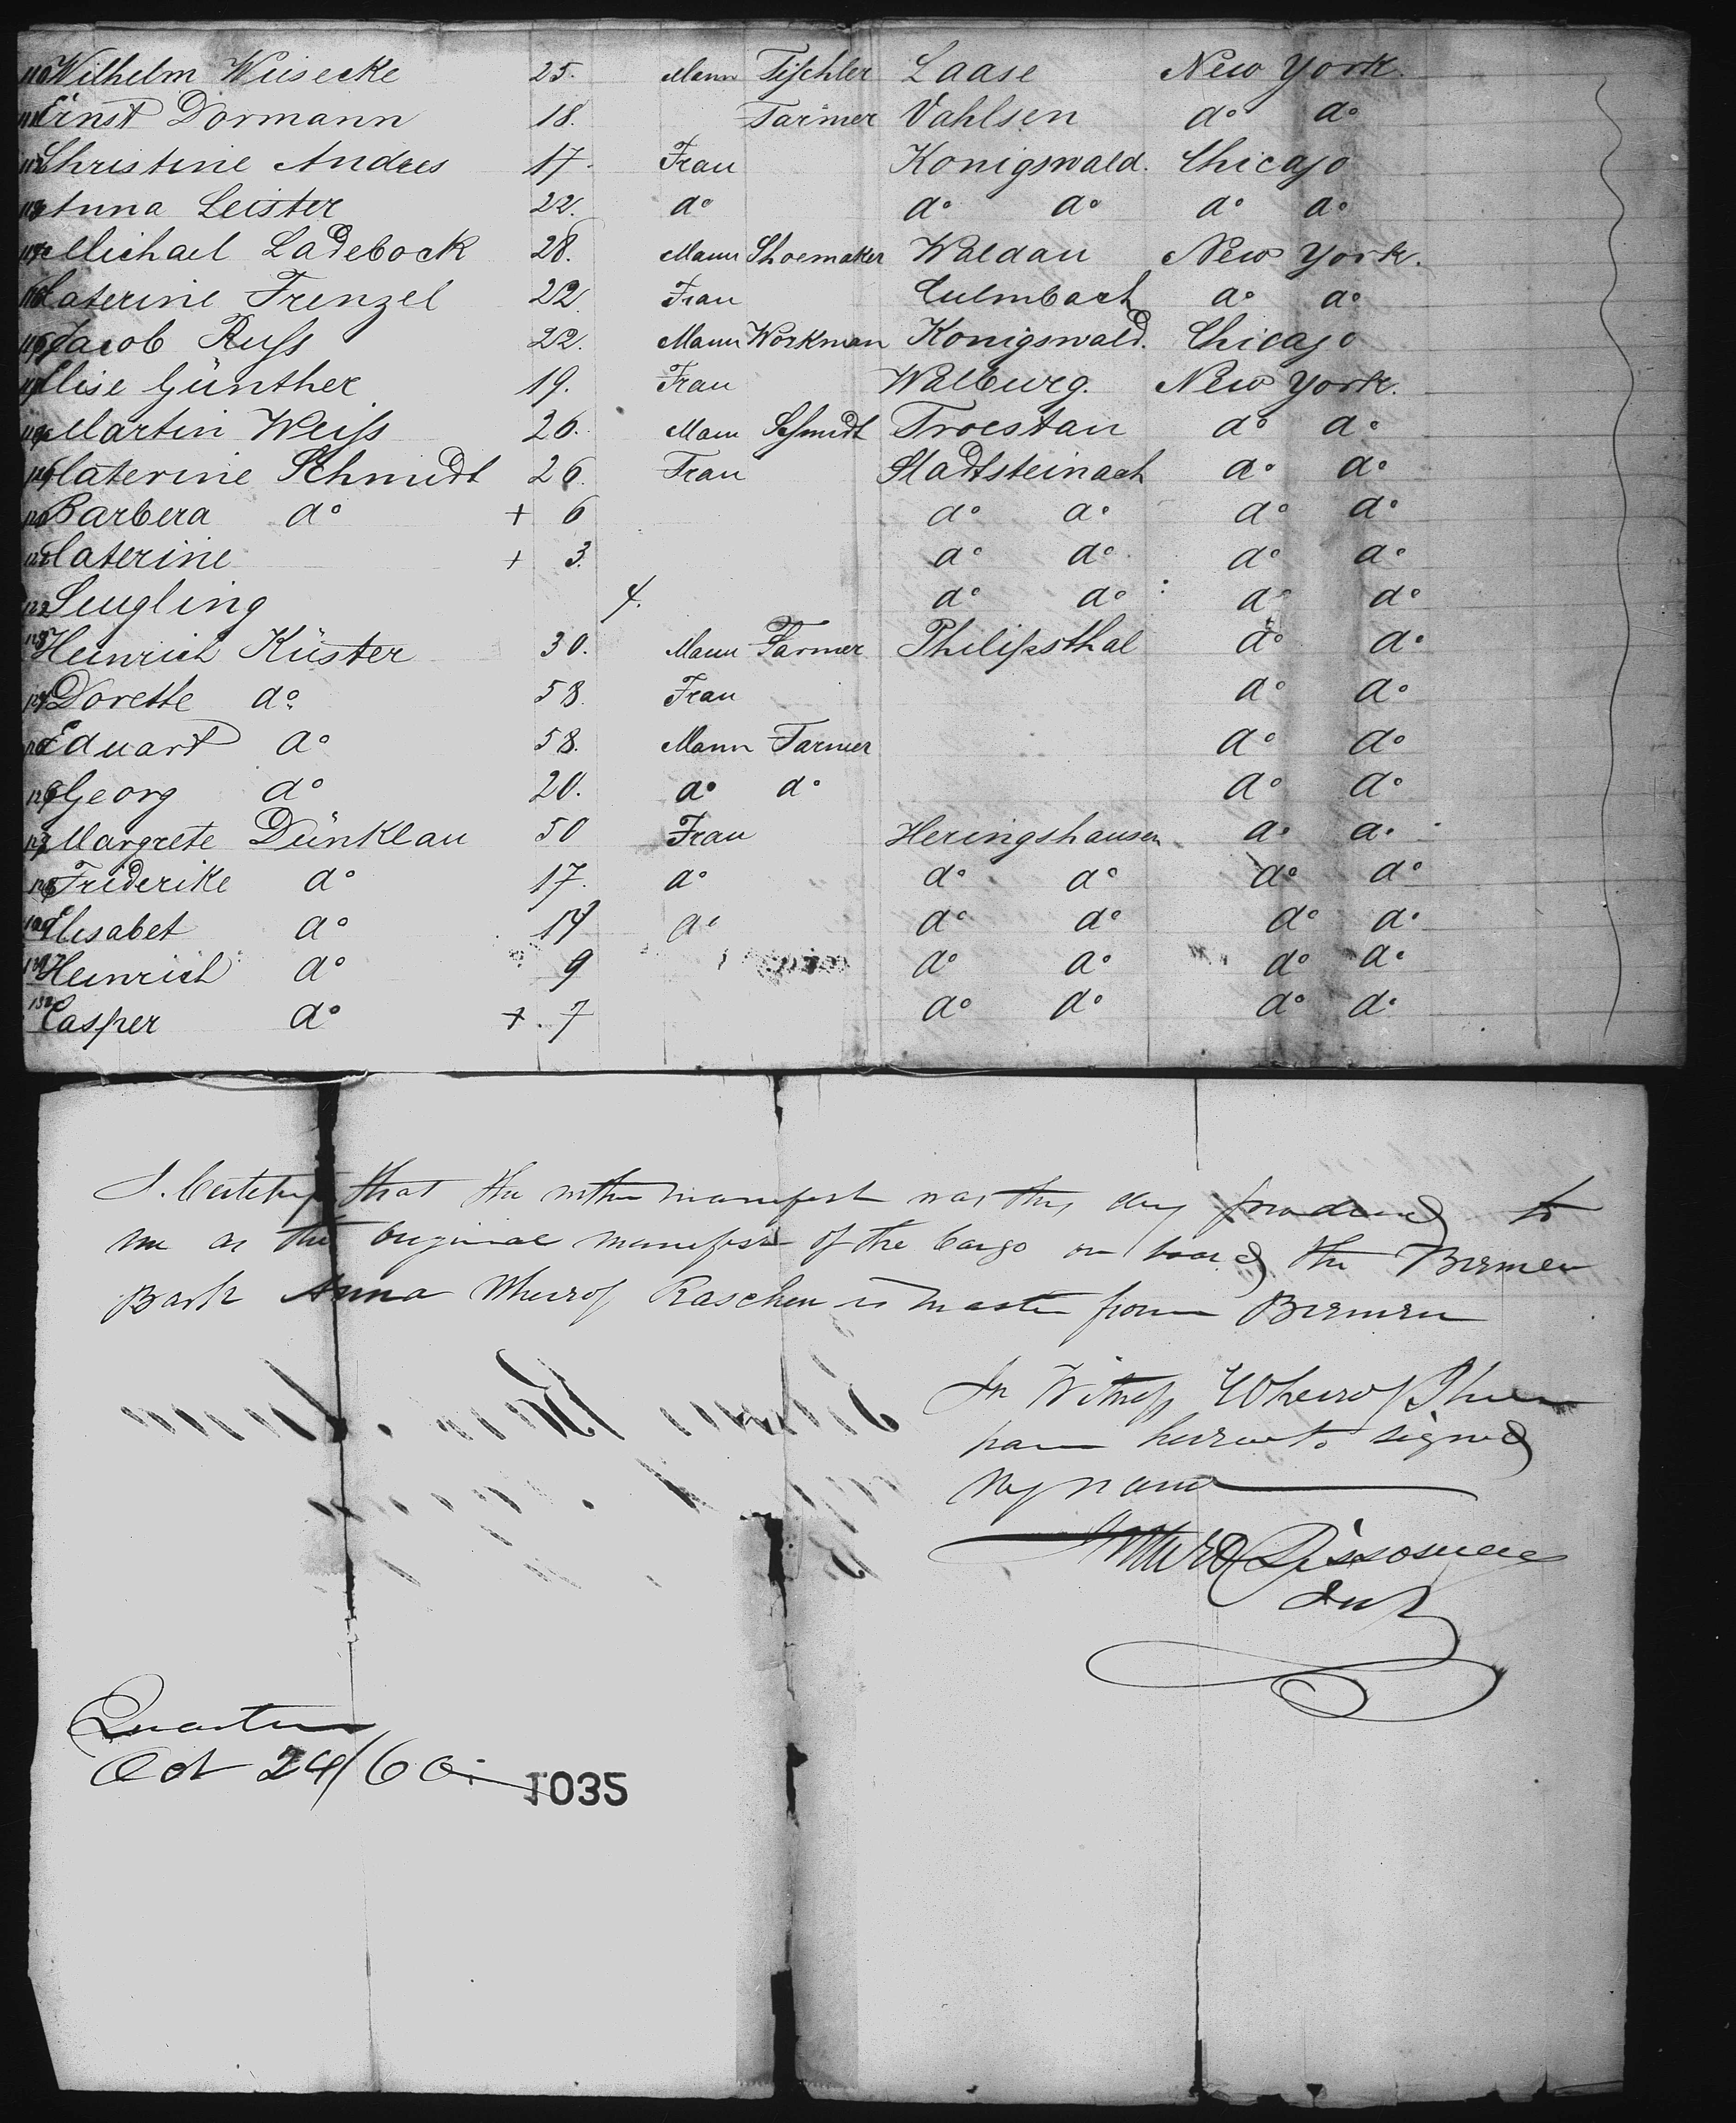 110 Wilhelm Weisecke 25. Mann Tischler Laase New York.
111 Ernst Dormann 18. Farmer Vahlsen do do
112 Christine Andres 17. Frau Konigswald. Chicago
113 Anna Leister 22. do do do do do
114 Michael Ladebock 28. Mann Shoemaker Waldau New York.
115 Caterine Frenzel 22. Frau Culmbach do do
116 Jacob Russ 22. Mann Workman Konigswald. Chicago
117 Elise Günther 19. Frau Walburg. New York.
118 Martin Weiss 26. Mann Schmidt Troestau do do
119 Caterine Schmidt 26. Frau Stadtsteinach do do
120 Barbera do + 6 do do do do
121 Caterine + 3. do do do do
122 Seugling 4. do do do do
123 Heinrich Küster 30. Mann Farmer Philipsthal do do
124 Dorette do 58. Frau do do
125 Eduart do 58. Mann Farmer do do
126 Georg do 20. do do do do
127 Margrete Dünklau 50 Frau Heringshausen do do
128 Friderike do 17. do do do do do
129 Elisabet do 14 do do do do do
Heinrich do 9 do do do do
Casper do + 7 do do do do
I. Certify that the within manifest was this day produced to
me as the original manifest of the Cargo on board the Bremen
Bark Anna Wherof Raschen is master from Bremen
In Witness Wherof I
have hereunto signed
My name
Quarantine
Oct 24/60
1035